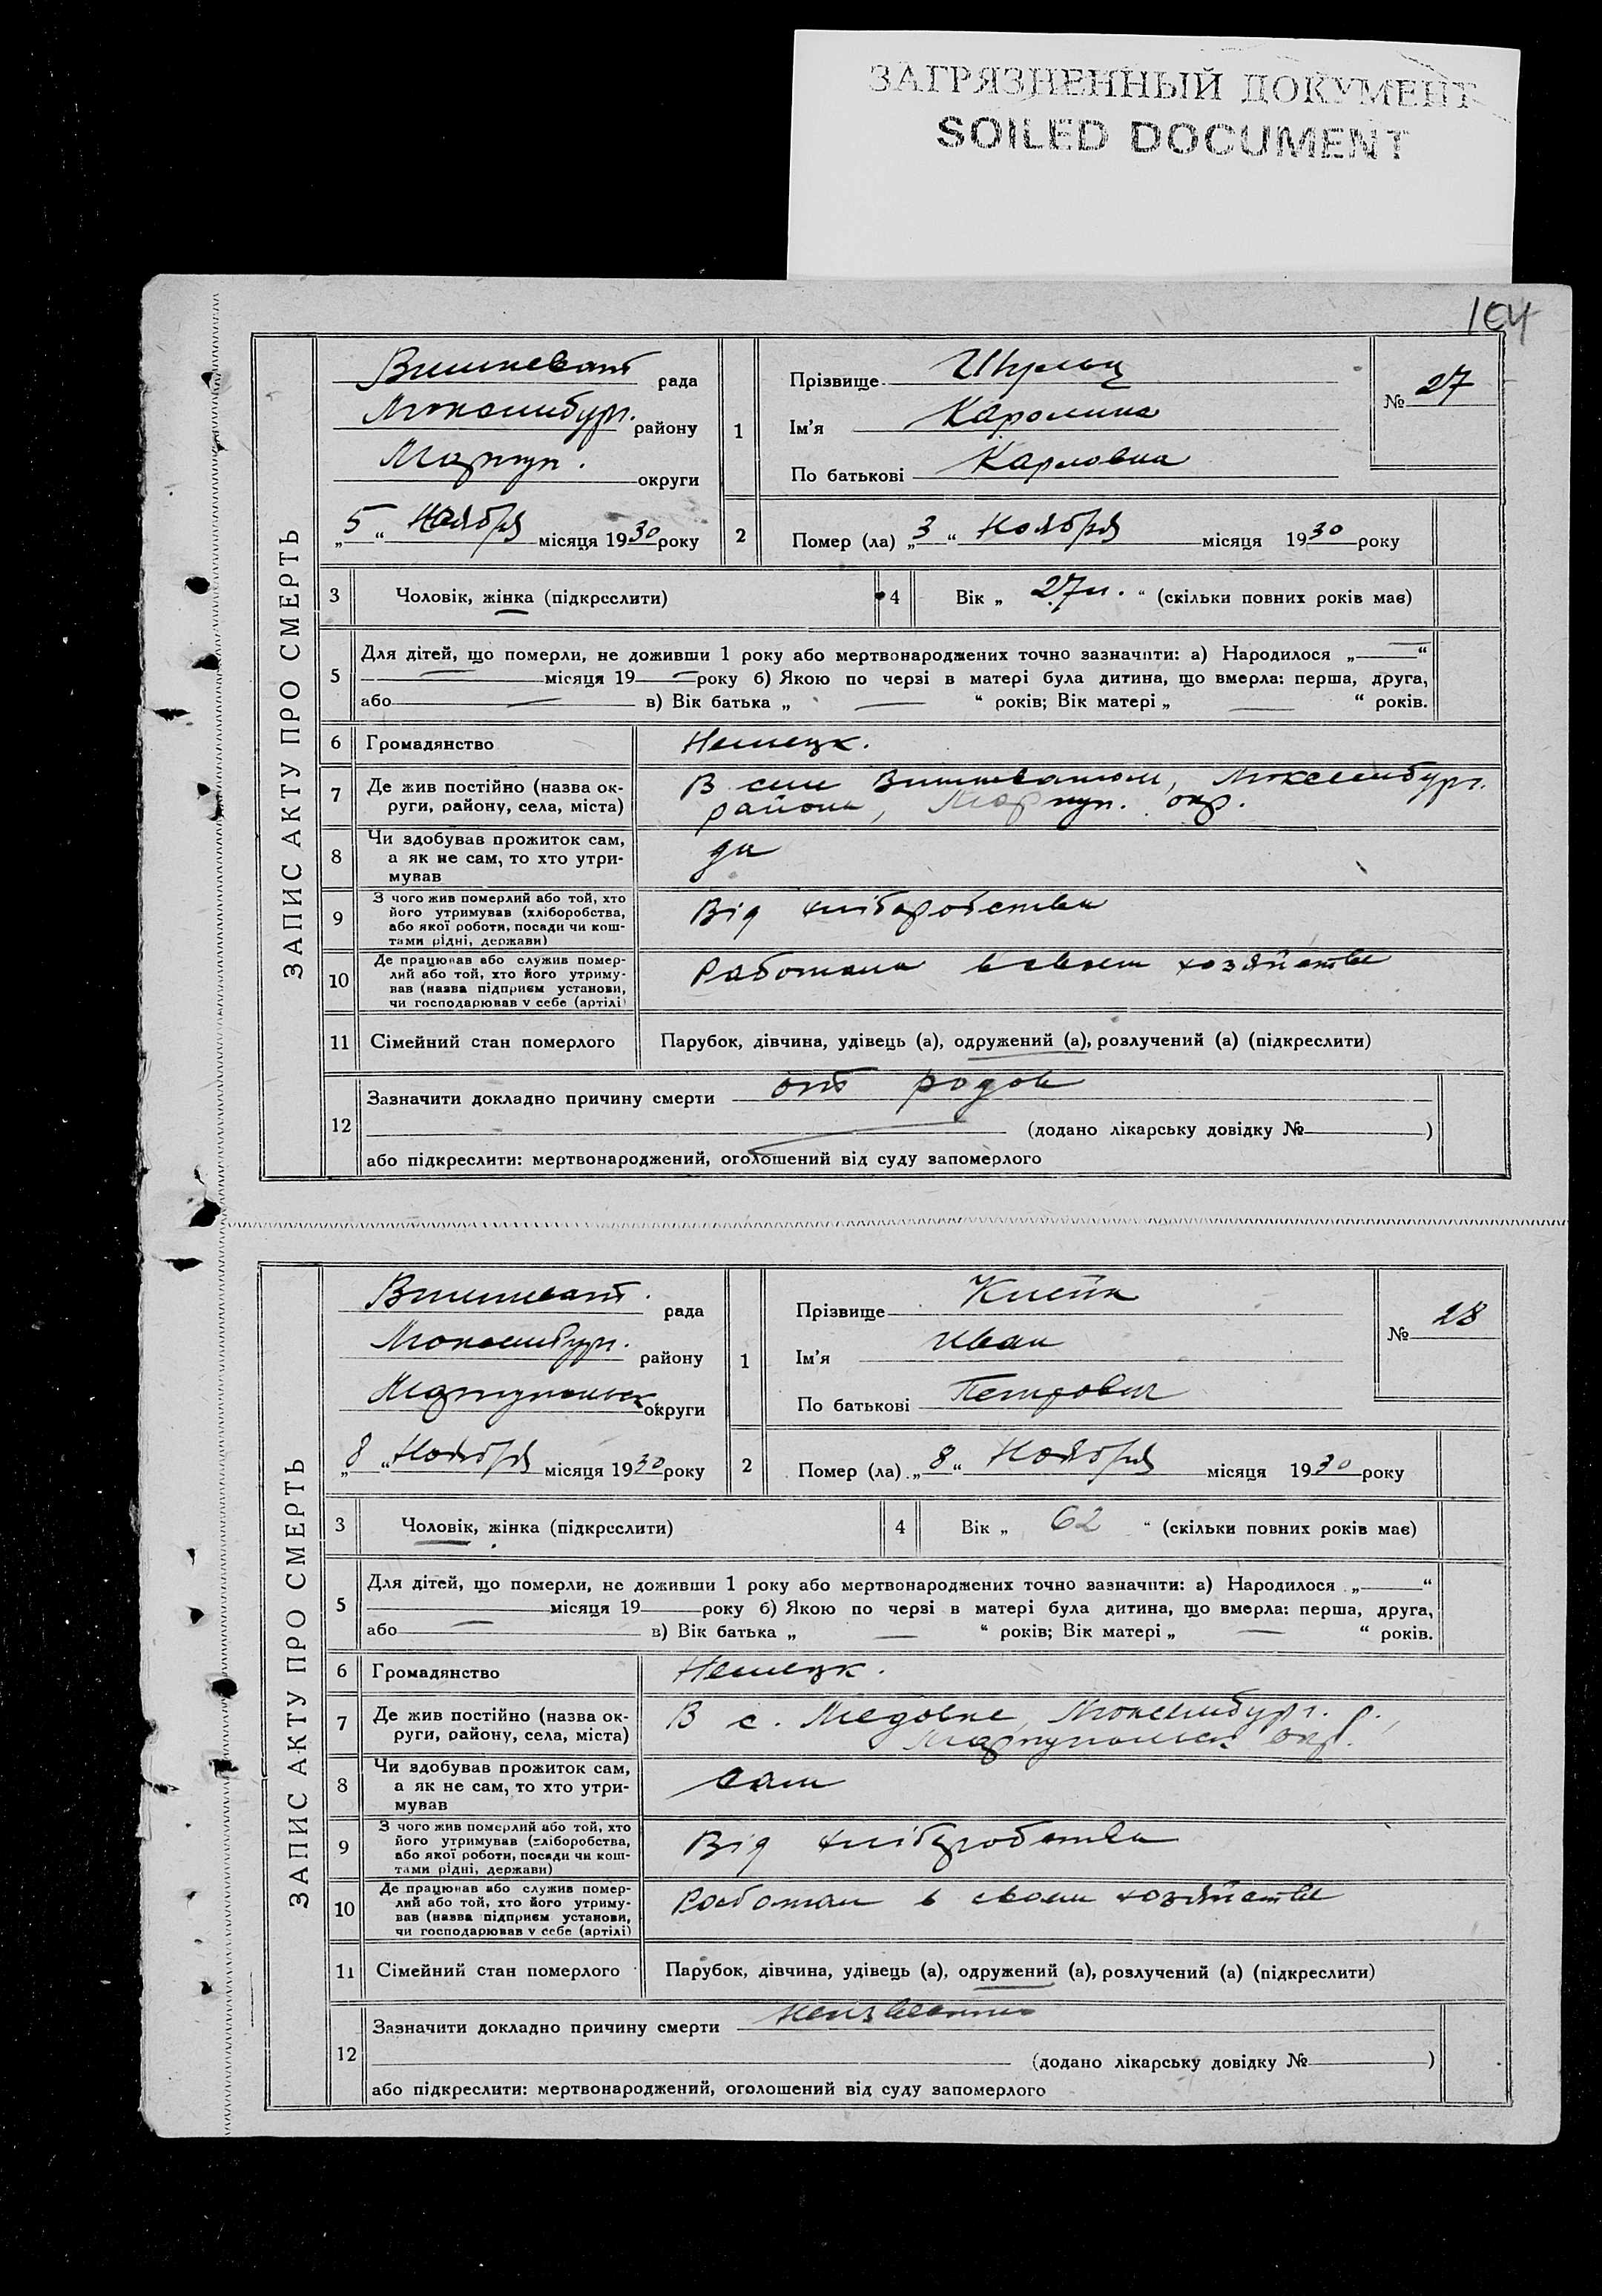 ЗАГРЯЗНЕННЫЙ ДОКУМЕНТ
SOILED DOCUMENT
104
ЗАПИС АКТУ ПРО СМЕРТЬ
Вишневат рада
району
Мариуп. округи
„5“ Ноября місяця 1930 року
1
Прізвище Шульц
Ім'я Каролина
По батькові Карловна
№ 27
2 Помер (ла) „3“ Ноября місяця 1930 року
3 Чоловік, жінка (підкреслити)
4 Вік „27 л.“ (скільки повних років має)
5 Для дітей, що померли, не доживши 1 року або мертвонароджених точно зазначити: а) Народилося „—“
— місяця 19— року б) Якою по черзі в матері була дитина, що вмерла: перша, друга,
або — в) Вік батька „ — “ років; Вік матері „ — “ років.
6 Громадянство Немецк.
7 Де жив постійно (назва ок-
руги, району, села, міста)
В селе Вишневатом,
района, Мариуп. окр.
8 Чи здобував прожиток сам,
а як не сам, то хто утри-
мував
да
9 З чого жив померлий або той, хто
його утримував (хліборобства,
або якої роботи, посади чи кош-
тами рідні, держави)
Від хліборобства
10 Де працював або служив помер-
лий або той, хто його утриму-
вав (назва підприєм установи,
чи господарював у себе (артілі)
Работала в своем хозяйстве
11 Сімейний стан померлого Парубок, дівчина, удівець (а), одружений (а), розлучений (а) (підкреслити)
12 Зазначити докладно причину смерти от родов
(додано лікарську довідку № )
або підкреслити: мертвонароджений, оголошений від суду запомерлого
ЗАПИС АКТУ ПРО СМЕРТЬ
Вишневат. рада
району
Мариупольск округи
„8“ Ноября місяця 1930 року
1
Прізвище Клейн
Ім'я Иван
По батькові Петрович
№ 28
2 Помер (ла) „8“ Ноября місяця 1930 року
3 Чоловік, жінка (підкреслити)
4 Вік „ 62 “ (скільки повних років має)
5 Для дітей, що померли, не доживши 1 року або мертвонароджених точно зазначити: а) Народилося „ “
місяця 19 року б) Якою по черзі в матері була дитина, що вмерла: перша, друга,
або — в) Вік батька „ — “ років; Вік матері „ — “ років.
6 Громадянство Немецк.
7 Де жив постійно (назва ок-
руги, району, села, міста)
В с. Медовке, р.,
Мариупольск. окр.
8 Чи здобував прожиток сам,
а як не сам, то хто утри-
мував
сам
9 З чого жив померлий або той, хто
його утримував (хліборобства,
або якої роботи, посади чи кош-
тами рідні, держави)
Від хліборобства
10 Де працював або служив помер-
лий або той, хто його утриму-
вав (назва підприєм установи,
чи господарював у себе (артілі)
Работал в своем хозяйстве
11 Сімейний стан померлого Парубок, дівчина, удівець (а), одружений (а), розлучений (а) (підкреслити)
12 Зазначити докладно причину смерти неизвестно
(додано лікарську довідку № )
або підкреслити: мертвонароджений, оголошений від суду запомерлого